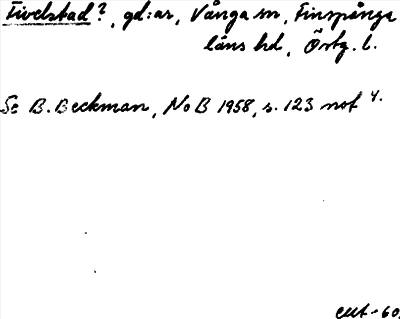 Tivelstad?, gd:ar, Vånga sn, Finspånga
läns hd, Östg. l.
Se B. Beckman, NoB 1958, s. 123 not 4.